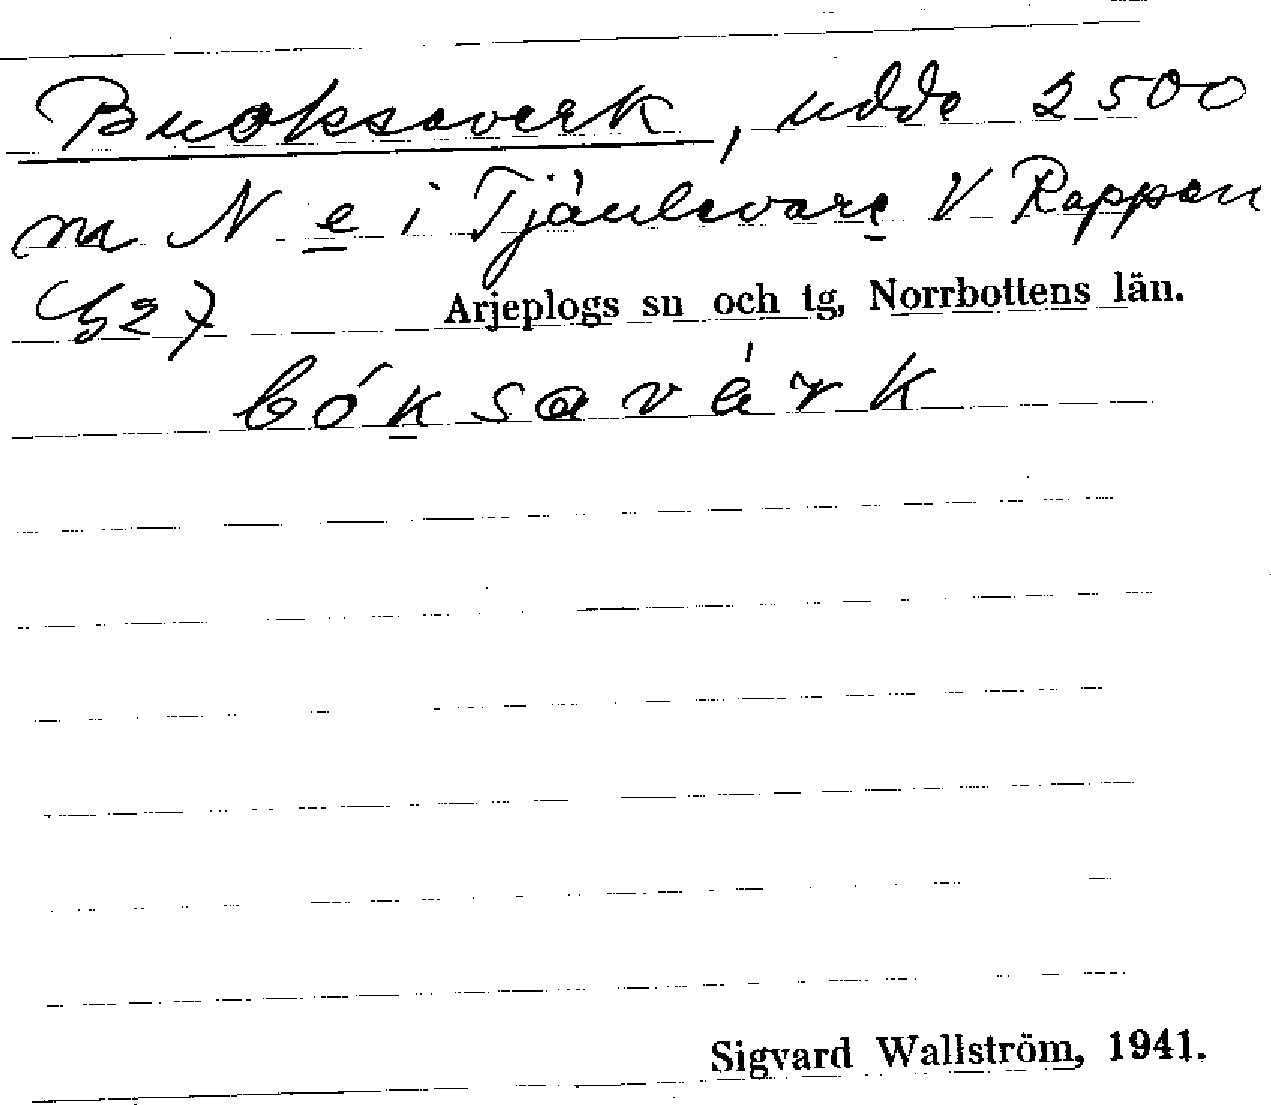 Buoksaverk, udde 2500
m N e i Tjäulevare V Rappen
G27 Arjeplogs sn och tg, Norrbottens län.
bóksavárk
Sigvard Wallström, 1941.